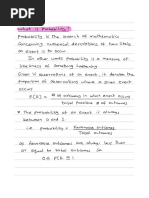 What is Probability?
Probability is the branch of mathematics
concerning numerical descriptions of how likely
an event is to occur
In other words probability is a measure of
likeliness of something happening.
Given N observations of an event, it denotes the
proportion of observations where a given event occurs
P(E) = # of outcomes in which event occurs
total possible # of outcomes
* The probability of an event is always
between 0 and 1.
i.e. probability = Favourable outcomes
Total outcomes
as favourable outcomes are always less than
or equal to total outcomes so
0 ≤ P(E) ≤ 1